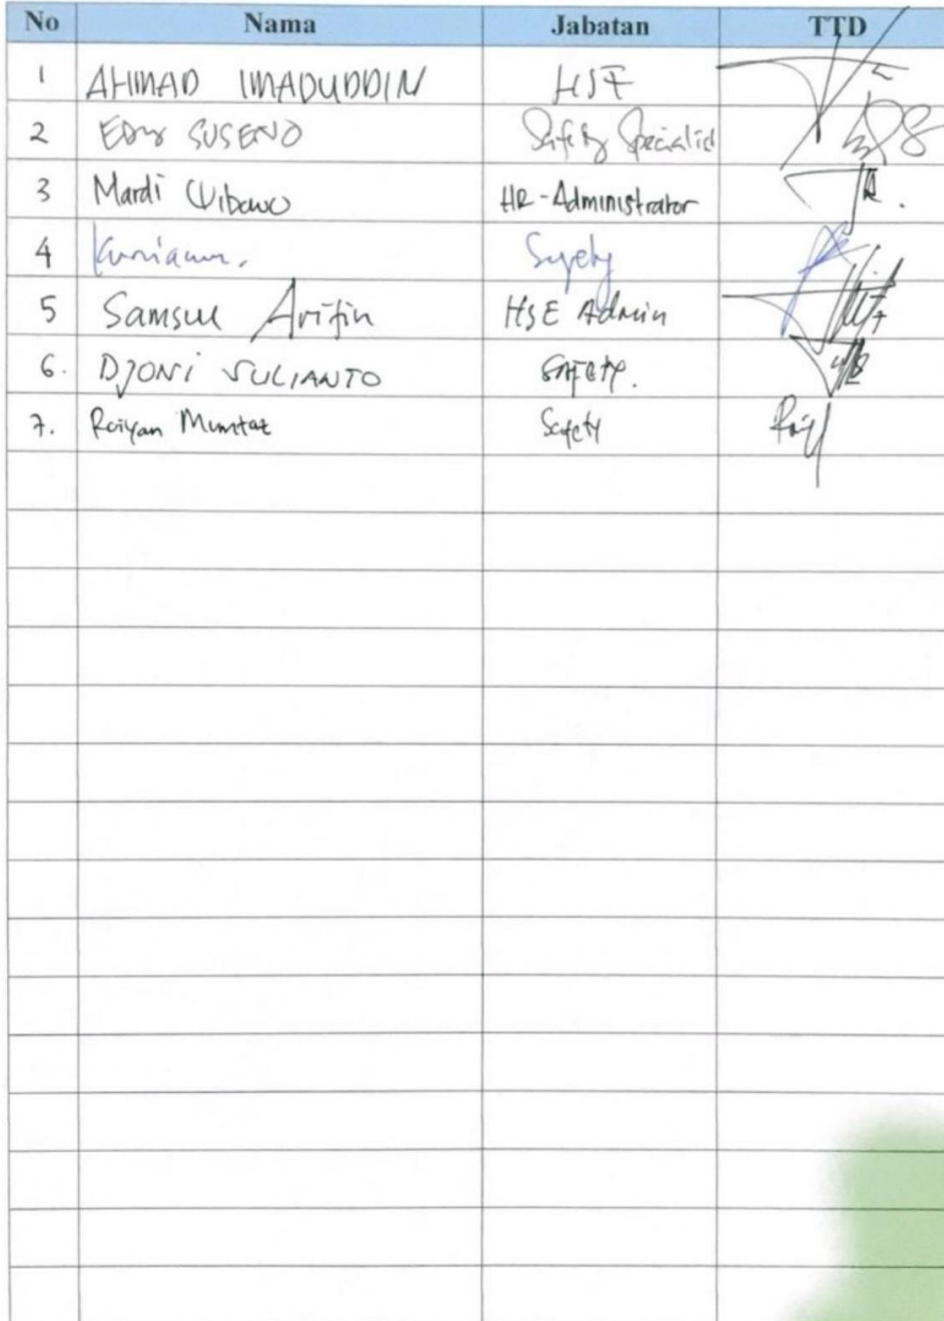 No Nama Jabatan TTD
1 AHMAD IMADUDDIN HSE
2 EDY SUSENO Safety Specialist
3 Mardi Wibowo HR-Administrator
4 Kurniawan. Safety
5 Samsul Arifin HSE Admin
6. DJONI SULIANTO SAFETY.
7. Raiyan Mumtaz Safety